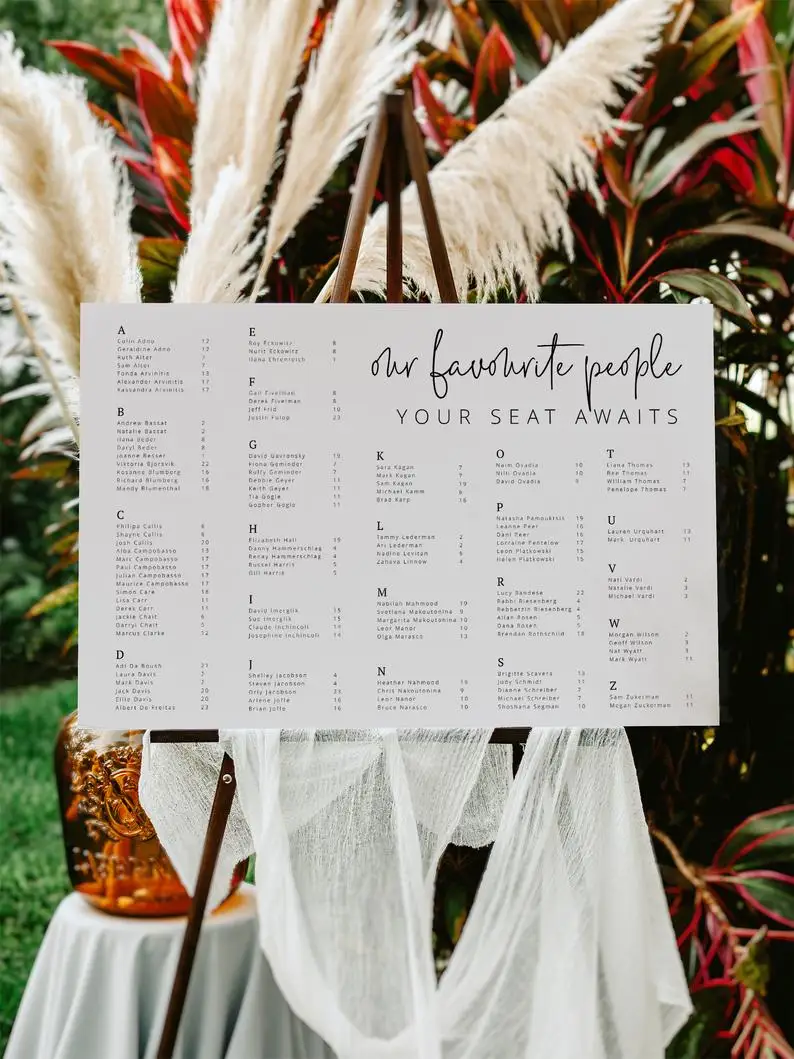 our favourite people
YOUR SEAT AWAITS
A
Colin Adno 12
Geraldine Adno 12
Ruth Alter 7
Sam Alter 7
Fonda Arvinitis 13
Alexander Arvinitis 17
Kassandra Arvinitis 17
B
Andrew Bassat 2
Natalie Bassat 2
Ilana Beder 8
Daryl Beder 8
Joanne Besser 1
Viktoria Bjorsvik 22
Rosanne Blumberg 16
Richard Blumberg 16
Mandy Blumenthal 18
C
Philipa Callis 6
Shayne Callis 6
Josh Callis 20
Alba Campobasso 13
Marc Campobasso 17
Paul Campobasso 17
Julian Campobasso 17
Maurice Campobasso 17
Simon Care 18
Lisa Carr 11
Derek Carr 11
Jackie Chait 6
Darryl Chait 5
Marcus Clarke 12
D
Adi Da Boush 21
Laura Davis 2
Mark Davis 2
Jack Davis 20
Ellie Davis 20
Albert De Freitas 23
E
Roy Eckowitz 8
Nurit Eckowitz 8
Ilana Ehrenreich 1
F
Gail Fivelman 8
Derek Fivelman 8
Jeff Frid 10
Justin Fulop 23
G
David Gavronsky 19
Fiona Geminder 7
Raffy Geminder 7
Debbie Geyer 11
Keith Geyer 11
Tia Gogle 11
Gopher Goglo 11
H
Elizabeth Hall 19
Danny Hammerschlag 4
Renay Hammerschlag 4
Russel Harris 5
Gill Harris 5
I
David Imerglik 15
Sue Imerglik 15
Claude Inchincoli 14
Josephine Inchincoli 14
J
Shelley Jacobson 4
Steven Jacobson 4
Orly Jacobson 23
Arlene Joffe 16
Brian Joffe 16
K
Sara Kagan 7
Mark Kagan 9
Sam Kagan 19
Michael Kamm 6
Brad Karp 16
L
Tammy Lederman 2
Ari Lederman 2
Nadine Levitan 6
Zahava Linnow 4
M
Nabilah Mahmood 19
Svetlana Makoutonina 9
Margarita Makoutonina 10
Leor Manor 10
Olga Marasco 13
N
Heather Nahmood 19
Chris Nakoutonina 9
Leor Nanor 10
Bruce Narasco 10
O
Naim Ovadia 10
Nilli Ovadia 10
David Ovadia 9
P
Natasha Pamouktsis 19
Leanne Peer 16
Dani Peer 16
Lorraine Pentelow 17
Leon Platkowski 15
Helen Platkowski 15
R
Lucy Randese 22
Rabbi Riesenberg 4
Rebbetzin Riesenberg 4
Allan Rosen 5
Dana Rosen 5
Brendan Rothschild 18
S
Brigitte Scavera 13
Judy Schmidt 11
Dianne Schreiber 7
Michael Schreiber 7
Shoshana Segman 10
T
Elana Thomas 13
Ben Thomas 11
William Thomas 7
Penelope Thomas 7
U
Lauren Urquhart 13
Mark Urquhart 11
V
Nati Vardi 2
Natalie Vardi 3
Michael Vardi 3
W
Morgan Wilson 2
Geoff Wilson 3
Nat Wyatt 3
Mark Wyatt 11
Z
Sam Zukerman 11
Megan Zuckerman 11